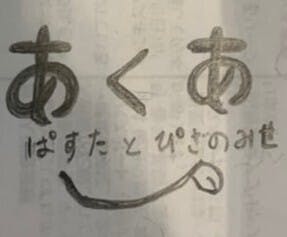 あくあ
ぱすたとぴざのみせ